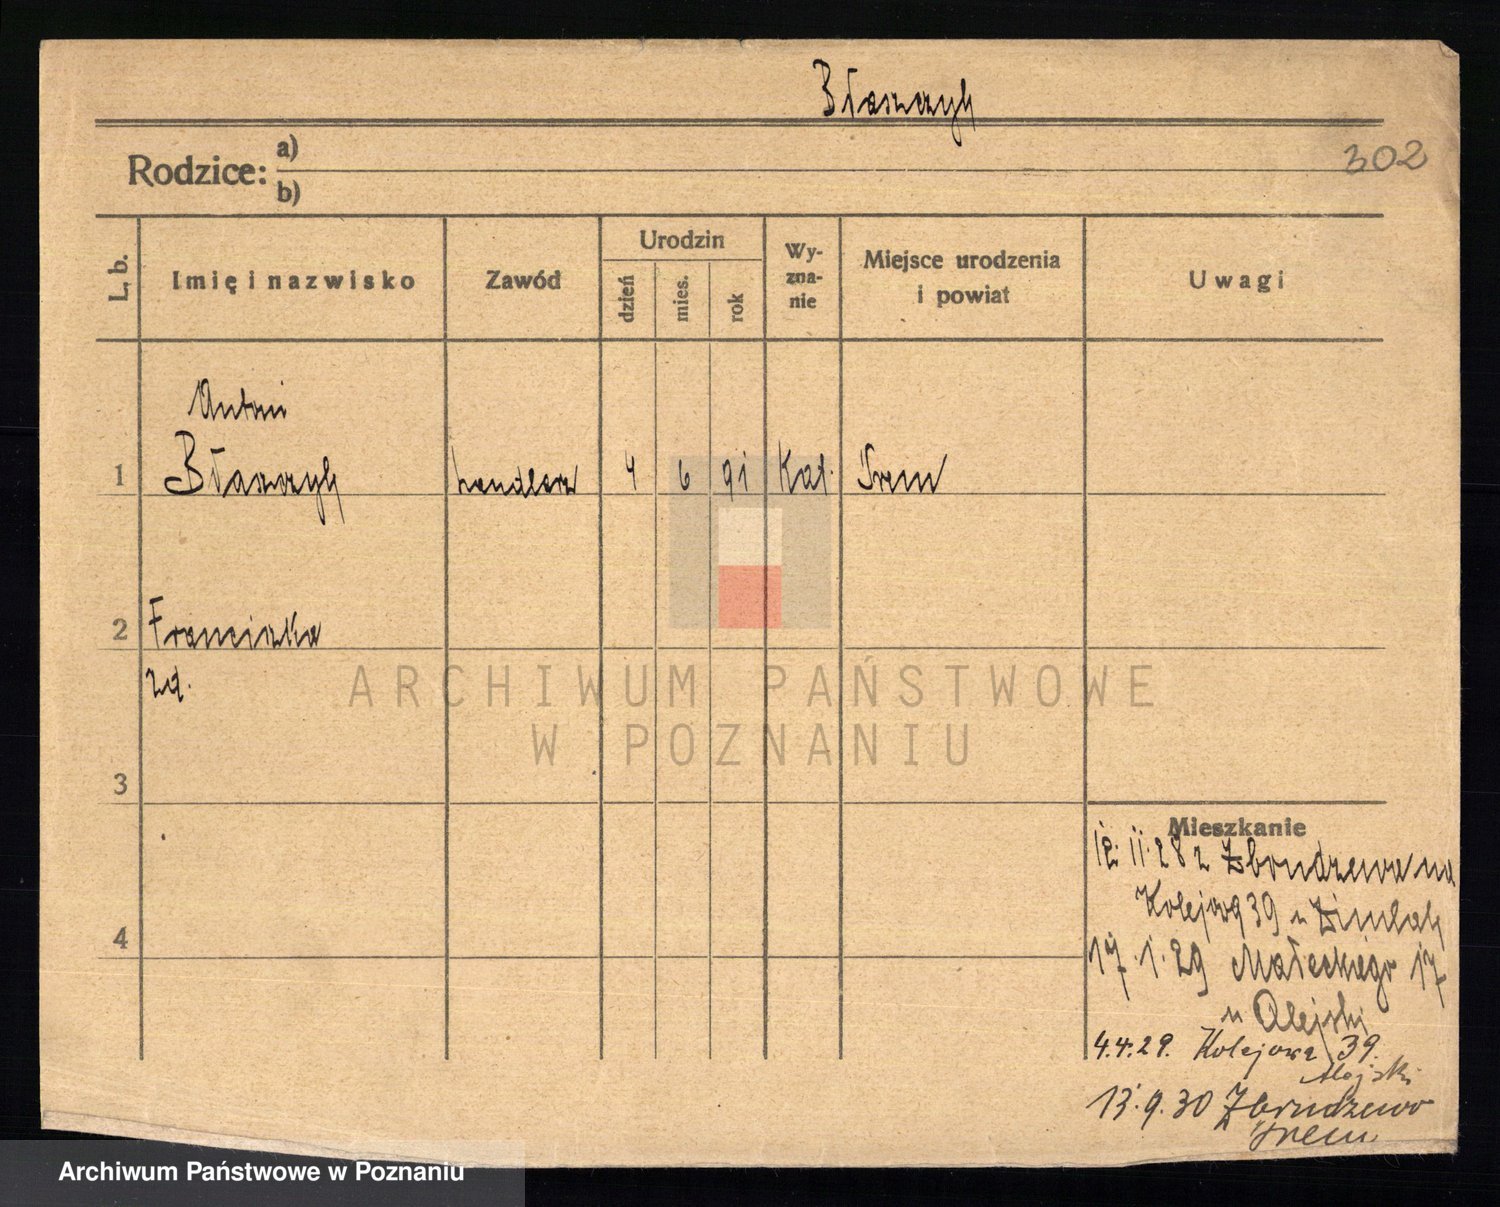 Błaszczyk
302
Rodzice: a)
b)
L. b. Imię i nazwisko Zawód Urodzin dzień mies. rok Wy-zna-nie Miejsce urodzenia i powiat Uwagi
Antoni
1 Błaszczyk handlarz 4 6 91 Kat. Śrem
2 Franciszka
zd.
3
Mieszkanie
12. 11. 28 z Zbrudzewa na
Kolejową 39 u
4
17. 1. 29 Małeckiego 17
u Olejski
4.4.29. Kolejowa 39.
13.9.30 Zbrudzewo
Śrem
ARCHIWUM PAŃSTWOWE
W POZNANIU
Archiwum Państwowe w Poznaniu